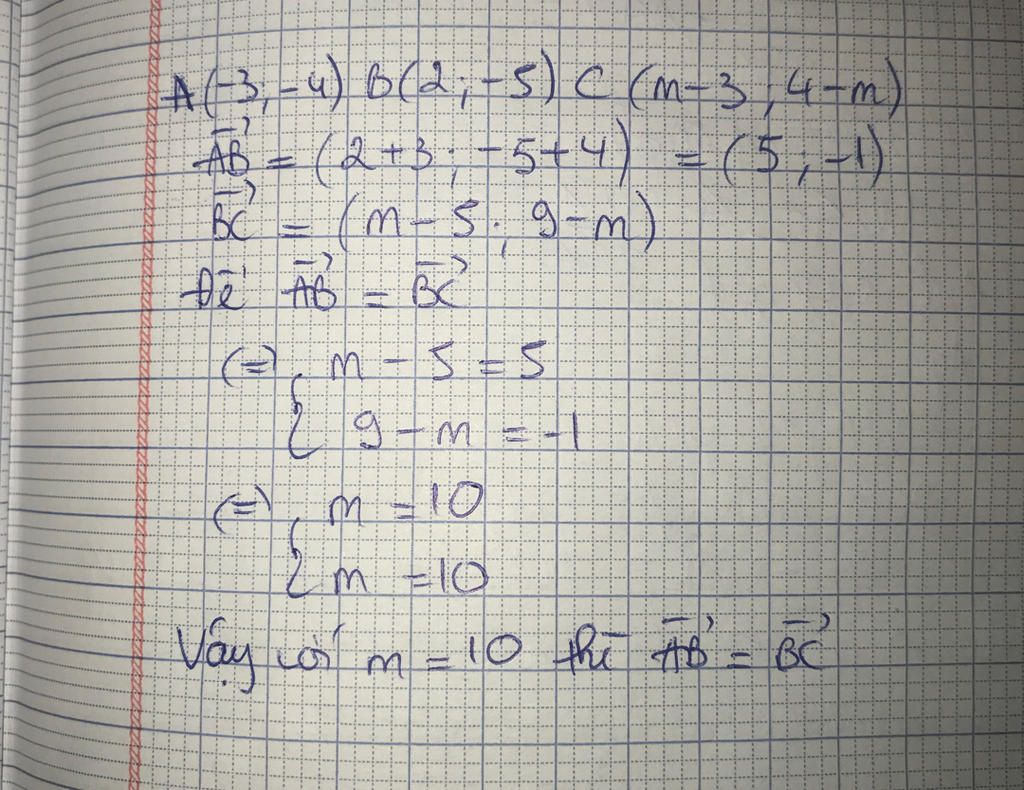 A(-3; -4) B(2; -5) C (m-3; 4-m)
\overrightarrow{AB} = (2+3; -5+4) = (5; -1)
\overrightarrow{BC} = (m-5; 9-m)
Để \overrightarrow{AB} = \overrightarrow{BC}
(=) { m - 5 = 5
9 - m = -1
(=) { m = 10
m = 10
Vậy với m = 10 thì \overrightarrow{AB} = \overrightarrow{BC}